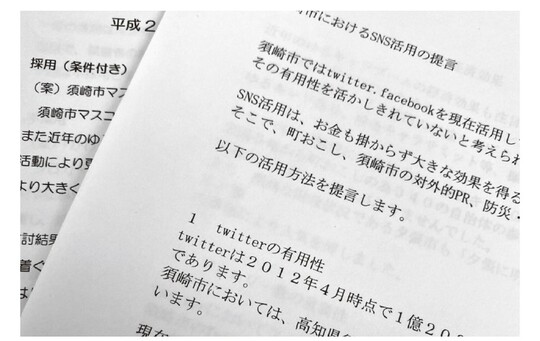 平成2
採用(条件付き)
(案)須崎市マス
須崎市マスコ
また近年のゆ
活動により
より大きく
討結果
着ぐ
市におけるSNS活用の提言
須崎市ではtwitter.facebookを現在活用し
その有用性を活かしきれていないと考えら
SNS活用は、お金も掛からず大きな効果を得る
そこで、町おこし、須崎市の対外的PR、防災・
以下の活用方法を提言します。
1 twitterの有用性
twitterは2012年4月時点で1億20
であります。
須崎市においては、高知県
います。
現在